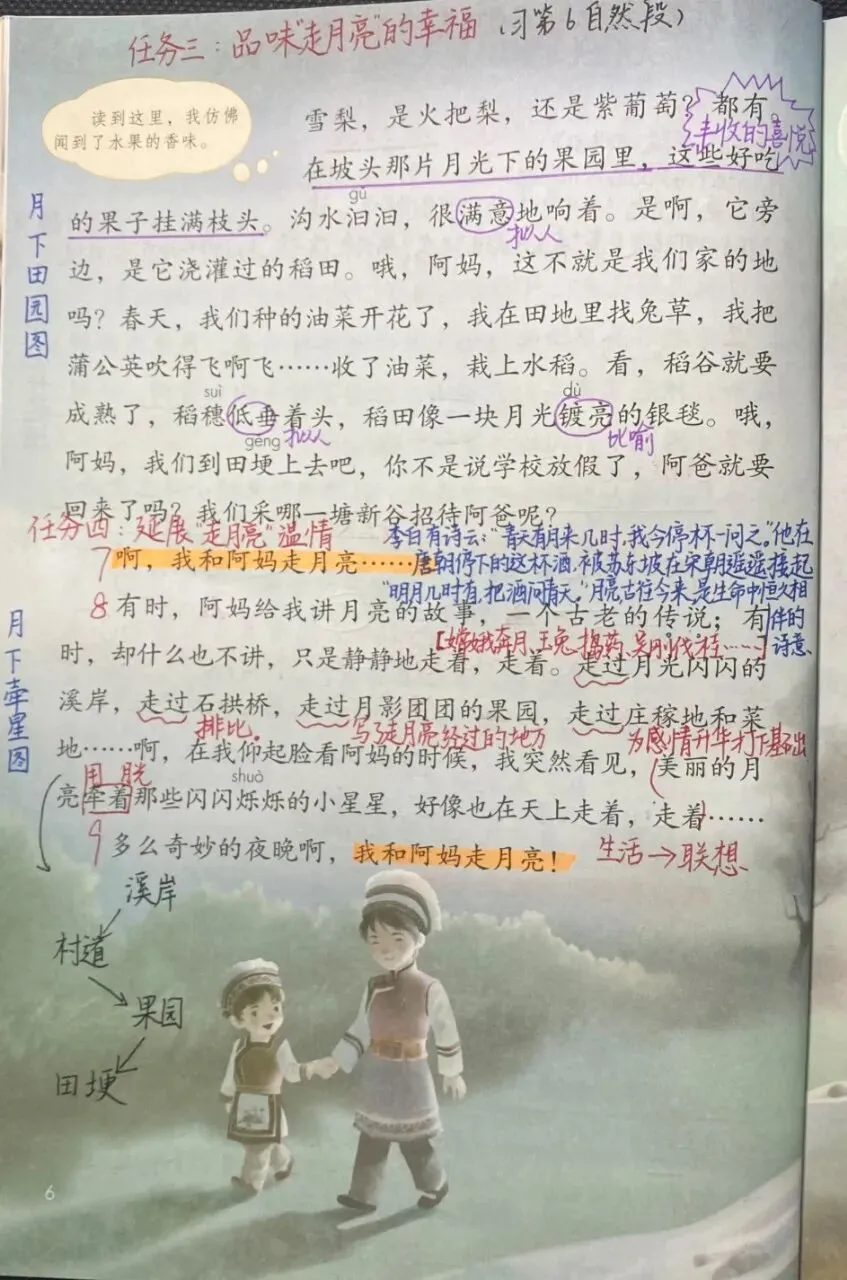 任务三:品味"走月亮"的幸福(习第6自然段)
读到这里,我仿佛
闻到了水果的香味。
雪梨,是火把梨,还是紫葡萄?都有。
丰收的喜悦
在坡头那片月光下的果园里,这些好吃
gǔ
的果子挂满枝头。沟水汩汩,很满意地响着。是啊,它旁
拟人
边,是它浇灌过的稻田。哦,阿妈,这不就是我们家的地
吗?春天,我们种的油菜开花了,我在田地里找兔草,我把
蒲公英吹得飞啊飞……收了油菜,栽上水稻。看,稻谷就要
suì dù
成熟了,稻穗低垂着头,稻田像一块月光镀亮的银毯。哦,
gěng 拟人 比喻
阿妈,我们到田埂上去吧,你不是说学校放假了,阿爸就要
回来了吗?我们采哪一塘新谷招待阿爸呢?
月下田园图
任务四:延展"走月亮"温情
李白有诗云:"青天有月来几时,我今停杯一问之。"他在
唐朝停下的这杯酒,被苏东坡在宋朝遥遥接起
"明月几时有,把酒问青天。"月亮古往今来,是生命中恒久相
伴的
诗意
7 啊,我和阿妈走月亮……
8 有时,阿妈给我讲月亮的故事,一个古老的传说;有
[嫦娥奔月、玉兔捣药、吴刚伐桂……]
时,却什么也不讲,只是静静地走着,走着。走过月光闪闪的
溪岸,走过石拱桥,走过月影团团的果园,走过庄稼地和菜
排比。 写了走月亮经过的地方 为感情升华打下基础
地……啊,在我仰起脸看阿妈的时候,我突然看见,美丽的月
shuò
亮牵着那些闪闪烁烁的小星星,好像也在天上走着,走着……
9 多么奇妙的夜晚啊,我和阿妈走月亮!
生活→联想
月下牵星图
溪岸
村道
果园
田埂
6